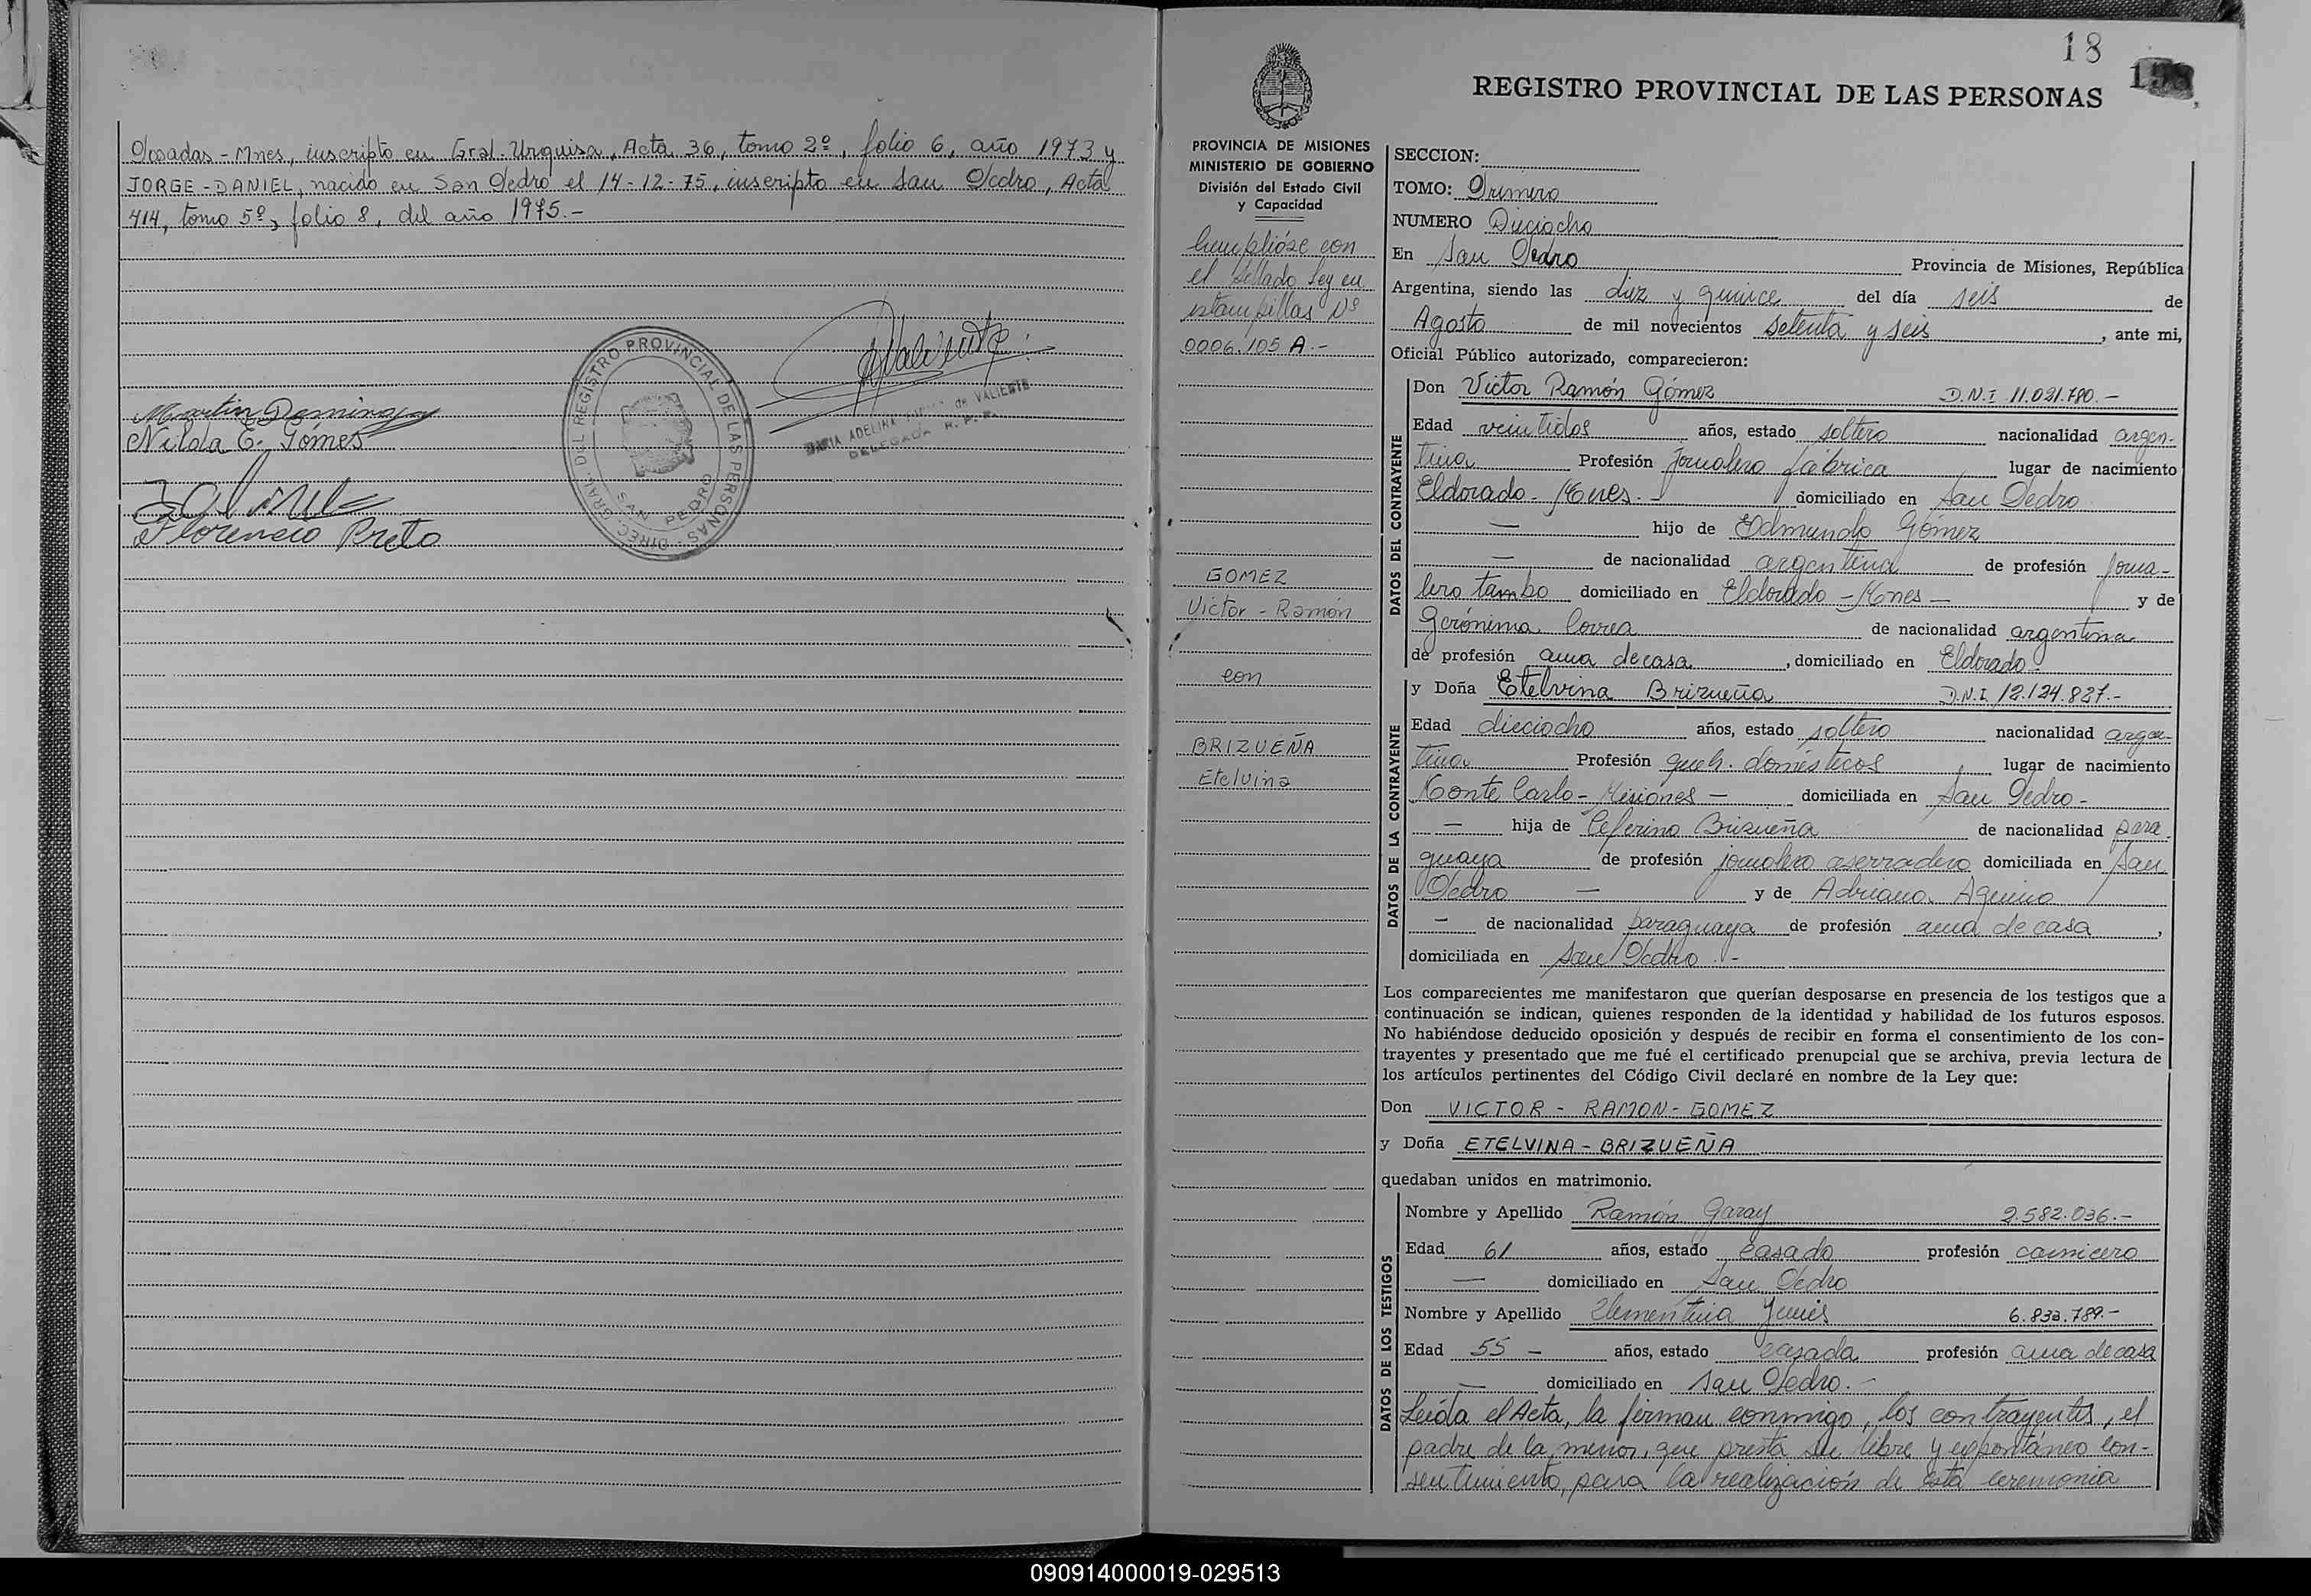 Posadas - Mnes, inscripto en Gral. Urquisa, Acta 36, tomo 2º, folio 6, año 1973 y
JORGE-DANIEL, nacido en San Pedro el 14-12-75, inscripto en San Pedro, Acta
414, tomo 5º, folio 8, del año 1975.-
DIREC. GRAL. DEL REGISTRO PROVINCIAL DE LAS PERSONAS
SAN PEDRO
MARIA ADELINA de VALIENTE
DELEGADA R. P. P.
Martin Domingo
Nilda E. Gómes
Florencio Preto
18
198
REGISTRO PROVINCIAL DE LAS PERSONAS
PROVINCIA DE MISIONES
MINISTERIO DE GOBIERNO
División del Estado Civil
y Capacidad
Cumplióse con
el Sellado Ley en
estampillas Nº
0006.105 A.-
GOMEZ
Victor - Ramón
con
BRIZUEÑA
Etelvina
SECCION:
TOMO: Primero
NUMERO Dieciocho
En San Pedro Provincia de Misiones, República
Argentina, siendo las diez y quince del día seis de
Agosto de mil novecientos setenta y seis, ante mi,
Oficial Público autorizado, comparecieron:
DATOS DEL CONTRAYENTE
Don Victor Ramón Gómez D.N.I. 11.021.780.-
Edad veintidos años, estado soltero nacionalidad argen-
tina Profesión Jornalero fábrica lugar de nacimiento
Eldorado - Mnes. - domiciliado en San Pedro
— hijo de Edmundo Gómez
— de nacionalidad argentina de profesión Jorna-
lero tambo domiciliado en Eldorado - Mnes - y de
Gerónima Correa de nacionalidad argentina
de profesión ama de casa, domiciliado en Eldorado
DATOS DE LA CONTRAYENTE
y Doña Etelvina Brizueña D.N.I. 12.124.827.-
Edad dieciocho años, estado soltero nacionalidad argen-
tina Profesión queh. domésticos lugar de nacimiento
Monte Carlo - Misiones - domiciliada en San Pedro -
— hija de Ceferino Brizueña de nacionalidad para-
guaya de profesión jornalero aserradero domiciliada en San
Pedro — y de Adriana Aquino
— de nacionalidad paraguaya de profesión ama de casa,
domiciliada en San Pedro.-
Los comparecientes me manifestaron que querían desposarse en presencia de los testigos que a
continuación se indican, quienes responden de la identidad y habilidad de los futuros esposos.
No habiéndose deducido oposición y después de recibir en forma el consentimiento de los con-
trayentes y presentado que me fué el certificado prenupcial que se archiva, previa lectura de
los artículos pertinentes del Código Civil declaré en nombre de la Ley que:
Don VICTOR - RAMON - GOMEZ
y Doña ETELVINA - BRIZUEÑA
quedaban unidos en matrimonio.
DATOS DE LOS TESTIGOS
Nombre y Apellido Ramón Garay 2.582.036.-
Edad 61 años, estado casado profesión carnicero
— domiciliado en San Pedro
Nombre y Apellido Clementina Yunis 6.833.789.-
Edad 55 - años, estado casada profesión ama de casa
— domiciliado en San Pedro.-
Leída el Acta, la firman conmigo, los contrayentes, el
padre de la menor, que presta su libre y expontáneo con-
sentimiento, para la realización de esta ceremonia
090914000019-029513